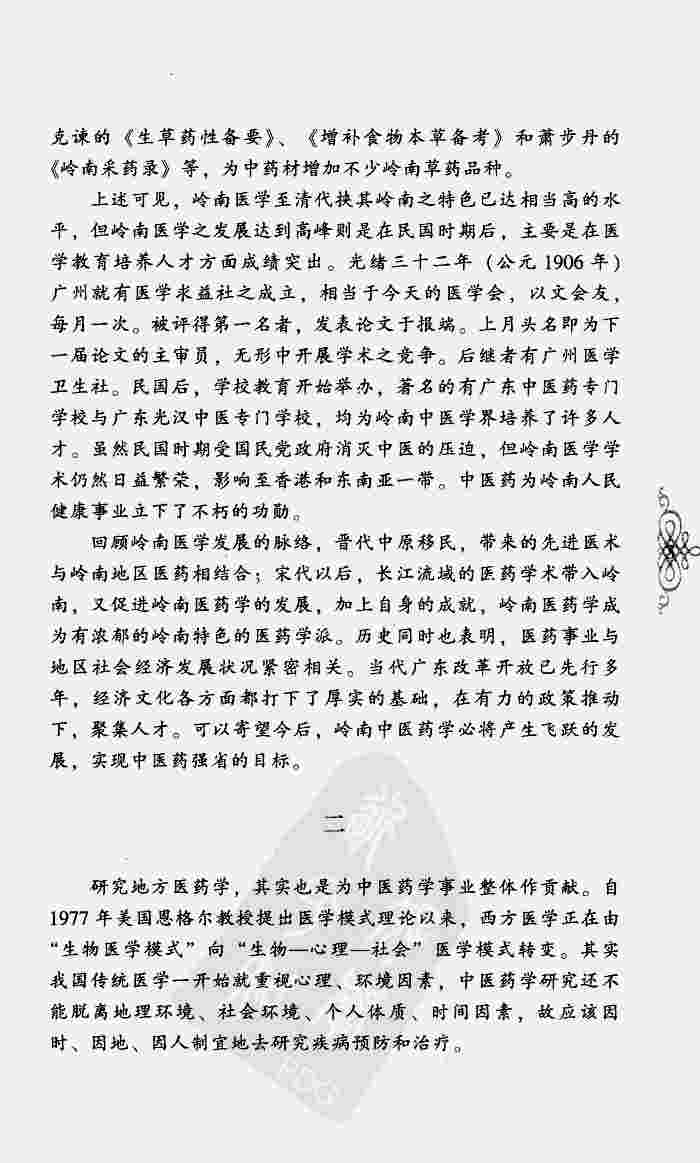 克谏的《生草药性备要》、《增补食物本草备考》和萧步丹的
《岭南采药录》等，为中药材增加不少岭南草药品种。
上述可见，岭南医学至清代挟其岭南之特色已达相当高的水
平，但岭南医学之发展达到高峰则是在民国时期后，主要是在医
学教育培养人才方面成绩突出。光绪三十二年（公元1906年）
广州就有医学求益社之成立，相当于今天的医学会，以文会友，
每月一次。被评得第一名者，发表论文于报端。上月头名即为下
一届论文的主审员，无形中开展学术之竞争。后继者有广州医学
卫生社。民国后，学校教育开始举办，著名的有广东中医药专门
学校与广东光汉中医专门学校，均为岭南中医学界培养了许多人
才。虽然民国时期受国民党政府消灭中医的压迫，但岭南医学学
术仍然日益繁荣，影响至香港和东南亚一带。中医药为岭南人民
健康事业立下了不朽的功勋。
回顾岭南医学发展的脉络，晋代中原移民，带来的先进医术
与岭南地区医药相结合；宋代以后，长江流域的医药学术带入岭
南，又促进岭南医药学的发展，加上自身的成就，岭南医药学成
为有浓郁的岭南特色的医药学派。历史同时也表明，医药事业与
地区社会经济发展状况紧密相关。当代广东改革开放已先行多
年，经济文化各方面都打下了厚实的基础，在有力的政策推动
下，聚集人才。可以寄望今后，岭南中医药学必将产生飞跃的发
展，实现中医药强省的目标。
二
研究地方医药学，其实也是为中医药学事业整体作贡献。自
1977年美国恩格尔教授提出医学模式理论以来，西方医学正在由
“生物医学模式”向“生物—心理—社会”医学模式转变。其实
我国传统医学一开始就重视心理、环境因素，中医药学研究还不
能脱离地理环境、社会环境、个人体质、时间因素，故应该因
时、因地、因人制宜地去研究疾病预防和治疗。